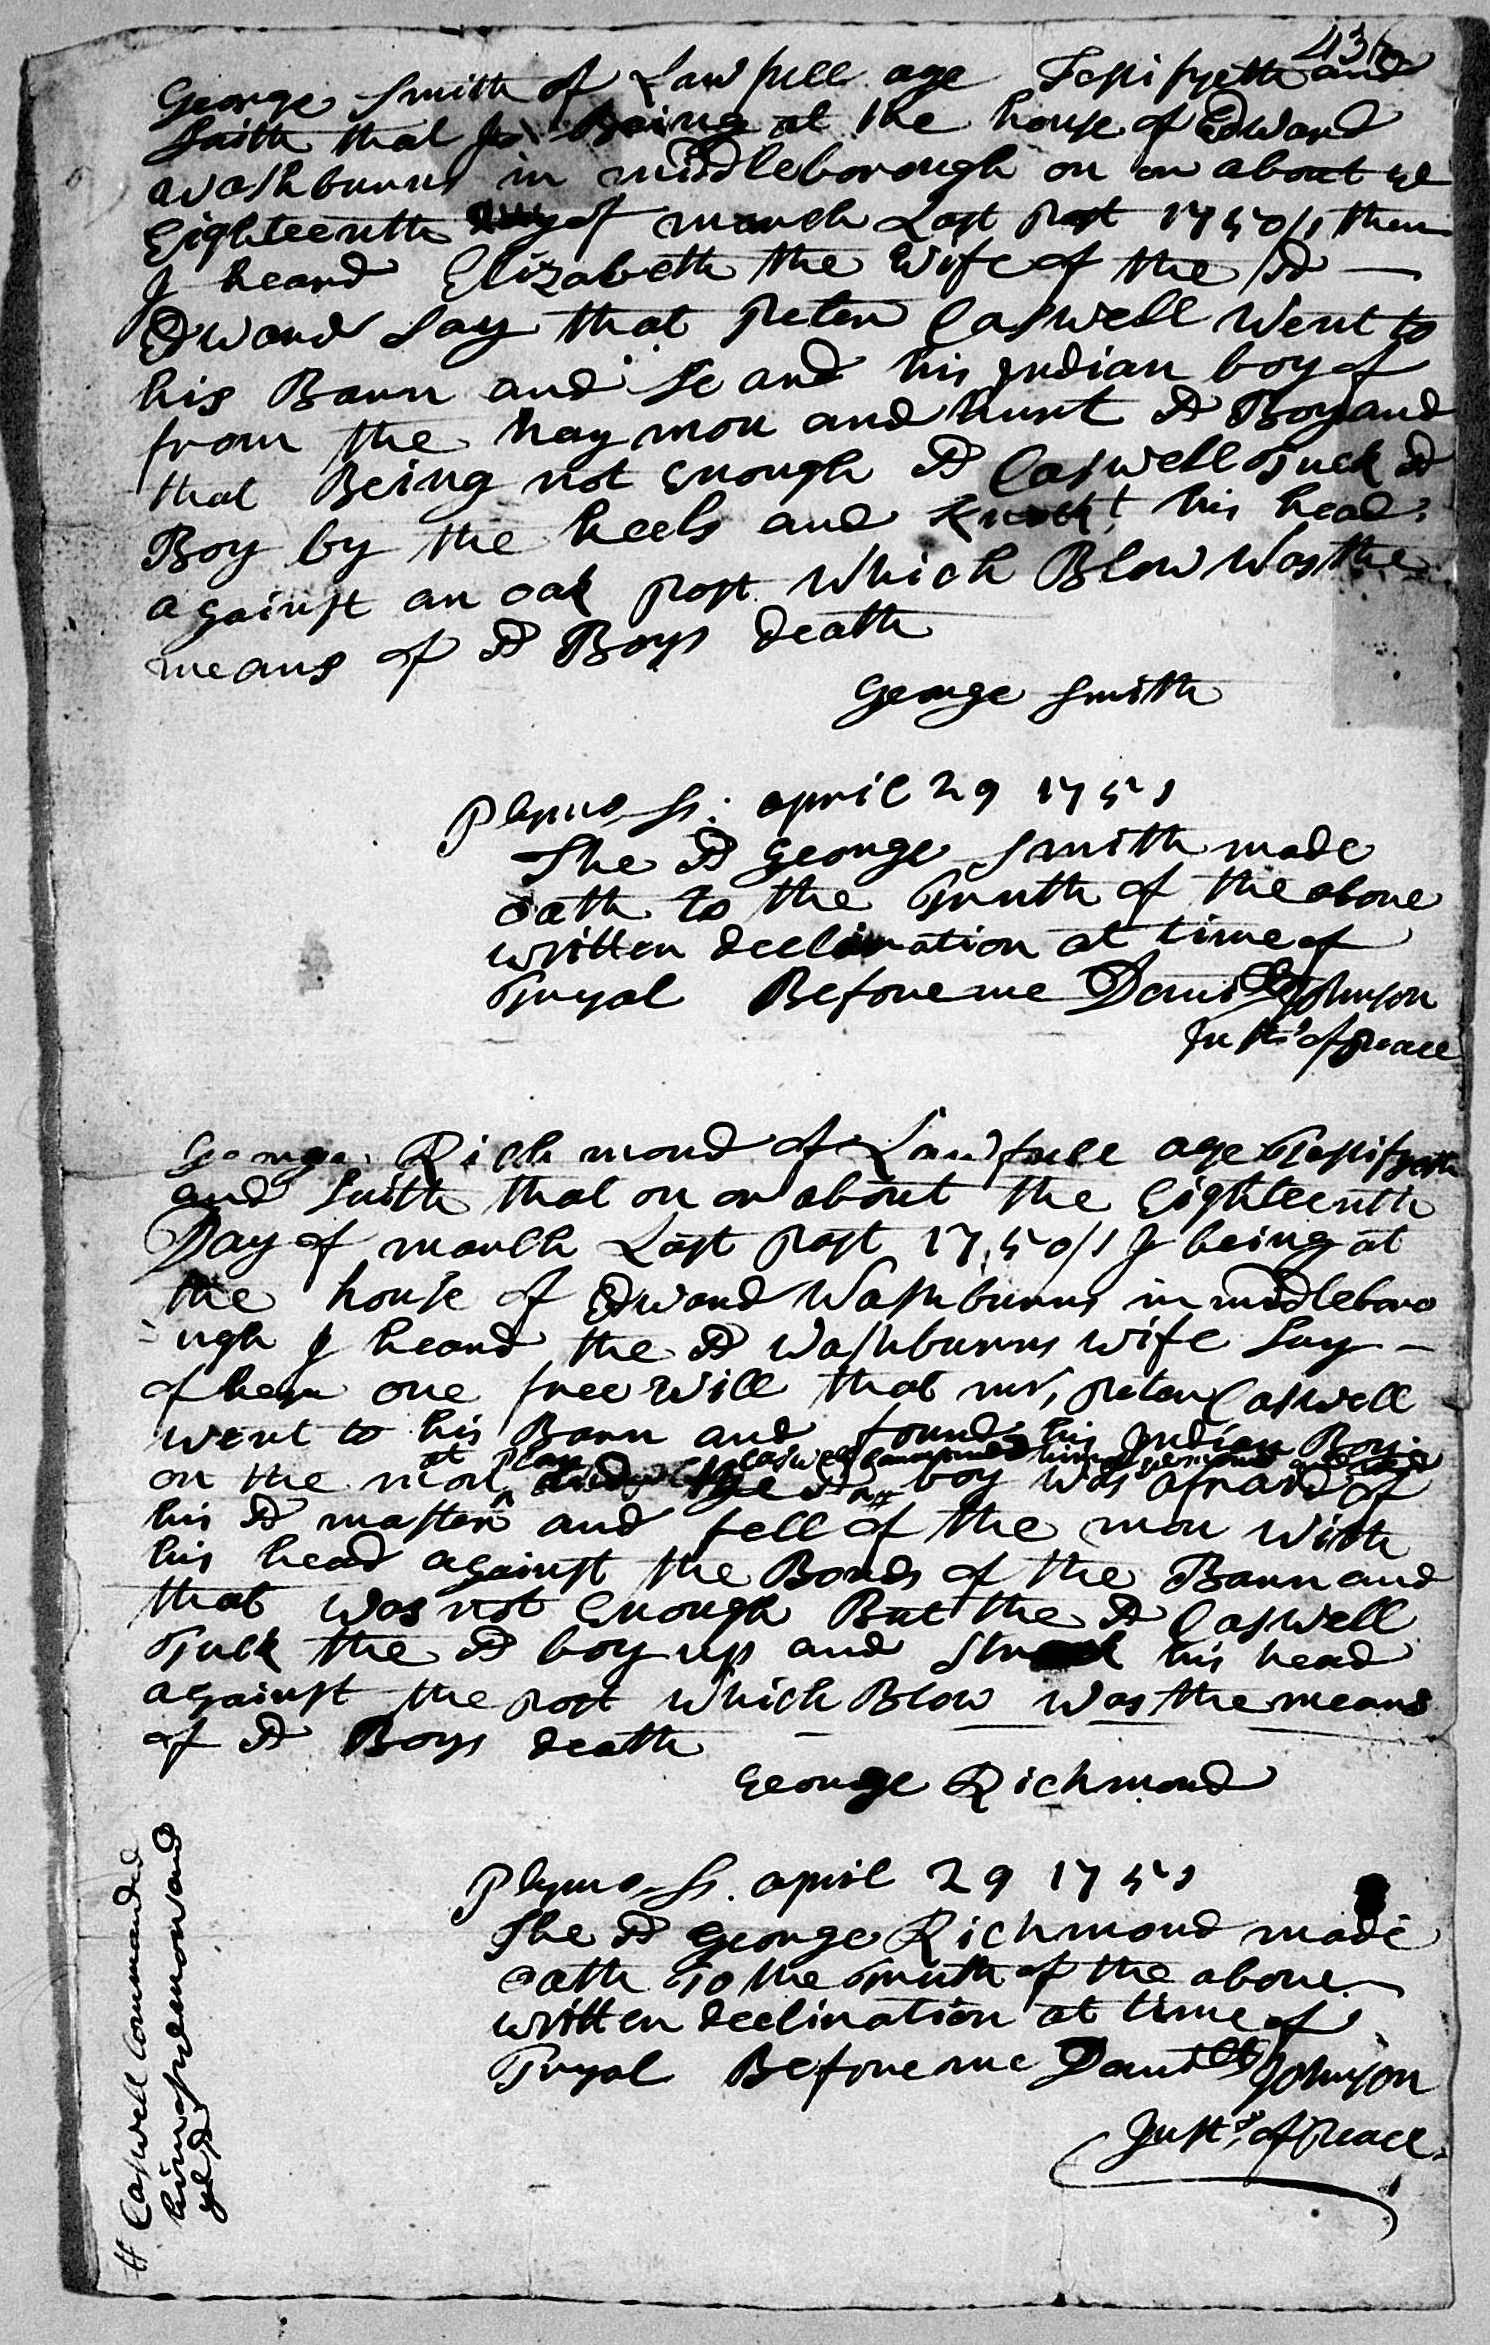 436
George Smith of Lawfull age Testifyeth and
Saith that I Being at the house of Edward
Washburns in middleborough on or about ye
Eighteenth Day of march Last Past 1750/1 then
I heard Elizabeth the Wife of the sd
Edward Say that Peter Caswell Went to
his Barn and his Indian boy of
from the hay mou and hurt sd Boy and
that Being not Enough sd Caswell Tuck sd
Boy by the heels and his head
against an oak Post Which Blow Was the
means of sd Boys death
George Smith
Plymo Ss: april 29 1751
The sd George Smith made
oath to the Truth of the above
written declaration at time of
Tryal Before me Daniel Johnson
Justs of Peace
George Richmond of Lawfull age Testifyeth
and Saith that on or about the Eighteenth
Day of march Last Past 1750/1 I being at
the house of Edward Washburns in middleboro
ugh I heard the sd Washburns wife Say
of her one free Will that mr, Peter Caswell
went to his Barn and found his Indian Boy
at Play Caswell him
on the mou the sd boy was afraid of
his sd master and fell of the mou With
his head against the Bords of the Barn and
that Was not Enough But the sd Caswell
Tuck the sd boy up and Struck his head
against the Post Which Blow Was the means
of sd Boys death
George Richmond
Plymo Ss. april 29 1751
The sd George Richmond made
oath To the Truth of the above
written declaration at time of
Tryal Before me Daniel Johnson
Justs, of Peace
# Caswell Commanded
him and
ye sd